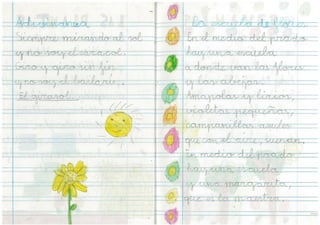 Adivinanza
Siempre mirando al sol
y no soy el caracol.
Giro y giro sin fin
y no soy el bailarín.
El girasol.
La escuela de flores
En el medio del prado
hay una escuela
a donde van las flores
y las abejas.
Amapolas y lirios,
violetas pequeñas,
campanillas azules
que con el aire, suenan.
En medio del prado
hay una escuela
y una margarita,
que es la maestra.